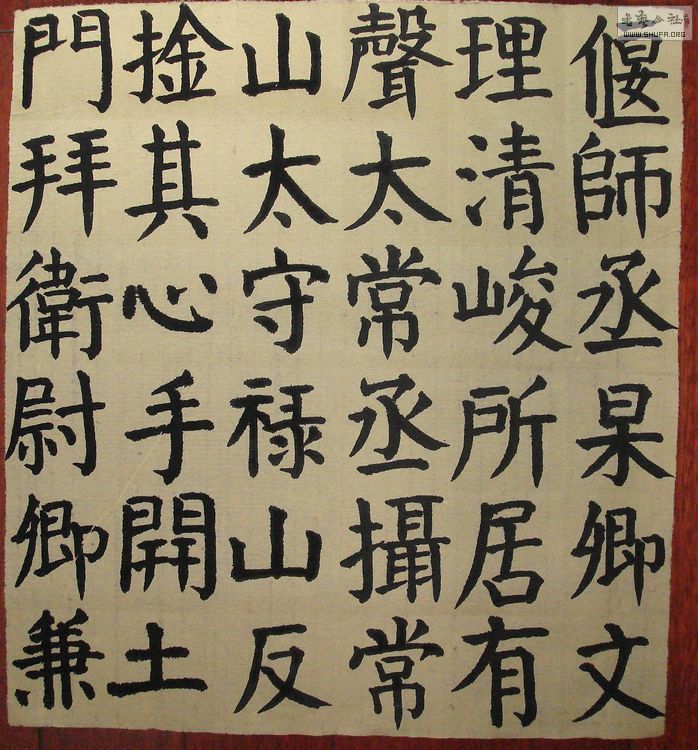 偃師丞杲卿文
理清峻所居有
聲太常丞攝常
山太守禄山反
捦其心手開土
門拜衛尉卿兼
WWW.SHUFA.ORG